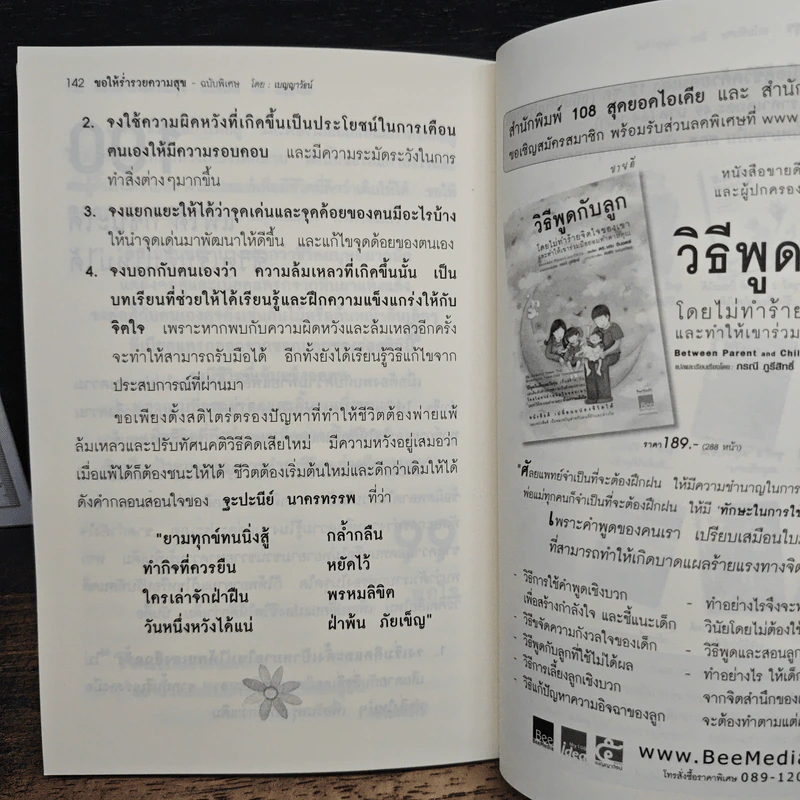 142 ขอให้ร่ำรวยความสุข - ฉบับพิเศษ โดย : เบญญาวัธน์
2. จงใช้ความผิดหวังที่เกิดขึ้นเป็นประโยชน์ในการเตือน
ตนเองให้มีความรอบคอบ และมีความระมัดระวังในการ
ทำสิ่งต่างๆมากขึ้น
3. จงแยกแยะให้ได้ว่าจุดเด่นและจุดด้อยของตนมีอะไรบ้าง
ให้นำจุดเด่นมาพัฒนาให้ดีขึ้น และแก้ไขจุดด้อยของตนเอง
4. จงบอกกับตนเองว่า ความล้มเหลวที่เกิดขึ้นนั้น เป็น
บทเรียนที่ช่วยให้ได้เรียนรู้และฝึกความแข็งแกร่งให้กับ
จิตใจ เพราะหากพบกับความผิดหวังและล้มเหลวอีกครั้ง
จะทำให้สามารถรับมือได้ อีกทั้งยังได้เรียนรู้วิธีแก้ไขจาก
ประสบการณ์ที่ผ่านมา
ขอเพียงตั้งสติไตร่ตรองปัญหาที่ทำให้ชีวิตต้องพ่ายแพ้
ล้มเหลวและปรับทัศนคติวิธีคิดเสียใหม่ มีความหวังอยู่เสมอว่า
เมื่อแพ้ได้ก็ต้องชนะให้ได้ ชีวิตต้องเริ่มต้นใหม่และดีกว่าเดิมให้ได้
ดังคำกลอนสอนใจของ ฐะปะนีย์ นาครทรรพ ที่ว่า
"ยามทุกข์ทนนิ่งสู้ กล้ำกลืน
ทำกิจที่ควรยืน หยัดไว้
ใครเล่าจักฝ่าฝืน พรหมลิขิต
วันหนึ่งหวังได้แน่ ฝ่าพ้น ภัยเข็ญ"
สำนักพิมพ์ 108 สุดยอดไอเดีย และ สำนัก
ขอเชิญสมัครสมาชิก พร้อมรับส่วนลดพิเศษที่ www
ขายดี
หนังสือขายดี
และผู้ปกครอง
วิธีพูดกับลูก
โดยไม่ทำร้ายจิตใจของเขา
และทำให้เขาร่วมมือยอมทำตามที่คุณ
วิธีพูด
โดยไม่ทำร้าย
และทำให้เขาร่วม
Between Parent and Chil
แปลและเรียบเรียงโดย : ภรณี ภูรีสิทธิ์
ราคา 189.- (288 หน้า)
"ศัลยแพทย์จำเป็นที่จะต้องฝึกฝน ให้มีความชำนาญในการ
พ่อแม่ทุกคนก็จำเป็นที่จะต้องฝึกฝน ให้มี 'ทักษะในการใช
เพราะคำพูดของคนเรา เปรียบเสมือนใบม
ที่สามารถทำให้เกิดบาดแผลร้ายแรงทางจิต
- วิธีการใช้คำพูดเชิงบวก
เพื่อสร้างกำลังใจ และชี้แนะเด็ก
- วิธีขจัดความกังวลใจของเด็ก
- วิธีพูดกับลูกที่ใช้ไม่ได้ผล
- วิธีการเลี้ยงลูกเชิงบวก
- วิธีแก้ปัญหาความอิจฉาของลูก
- ทำอย่างไรจึงจะห
วินัยโดยไม่ต้องใช้
- วิธีพูดและสอนลูก
- ทำอย่างไร ให้เด็ก
จากจิตสำนึกของเ
จะต้องทำตามแต่เ
Bee
Idea
www.BeeMedia
โทรสั่งซื้อราคาพิเศษ 089-120